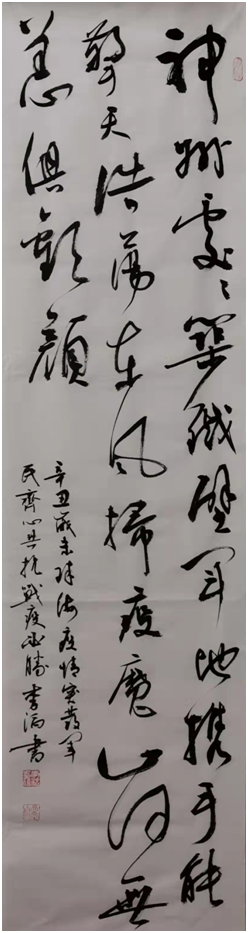 神州處々築鐵壁軍地携手能
擎天浩蕩東風掃疫魔山河無
恙俱歡顏
辛丑歲末珠海疫情突發軍
民齊心共抗戰疫必勝 李 書